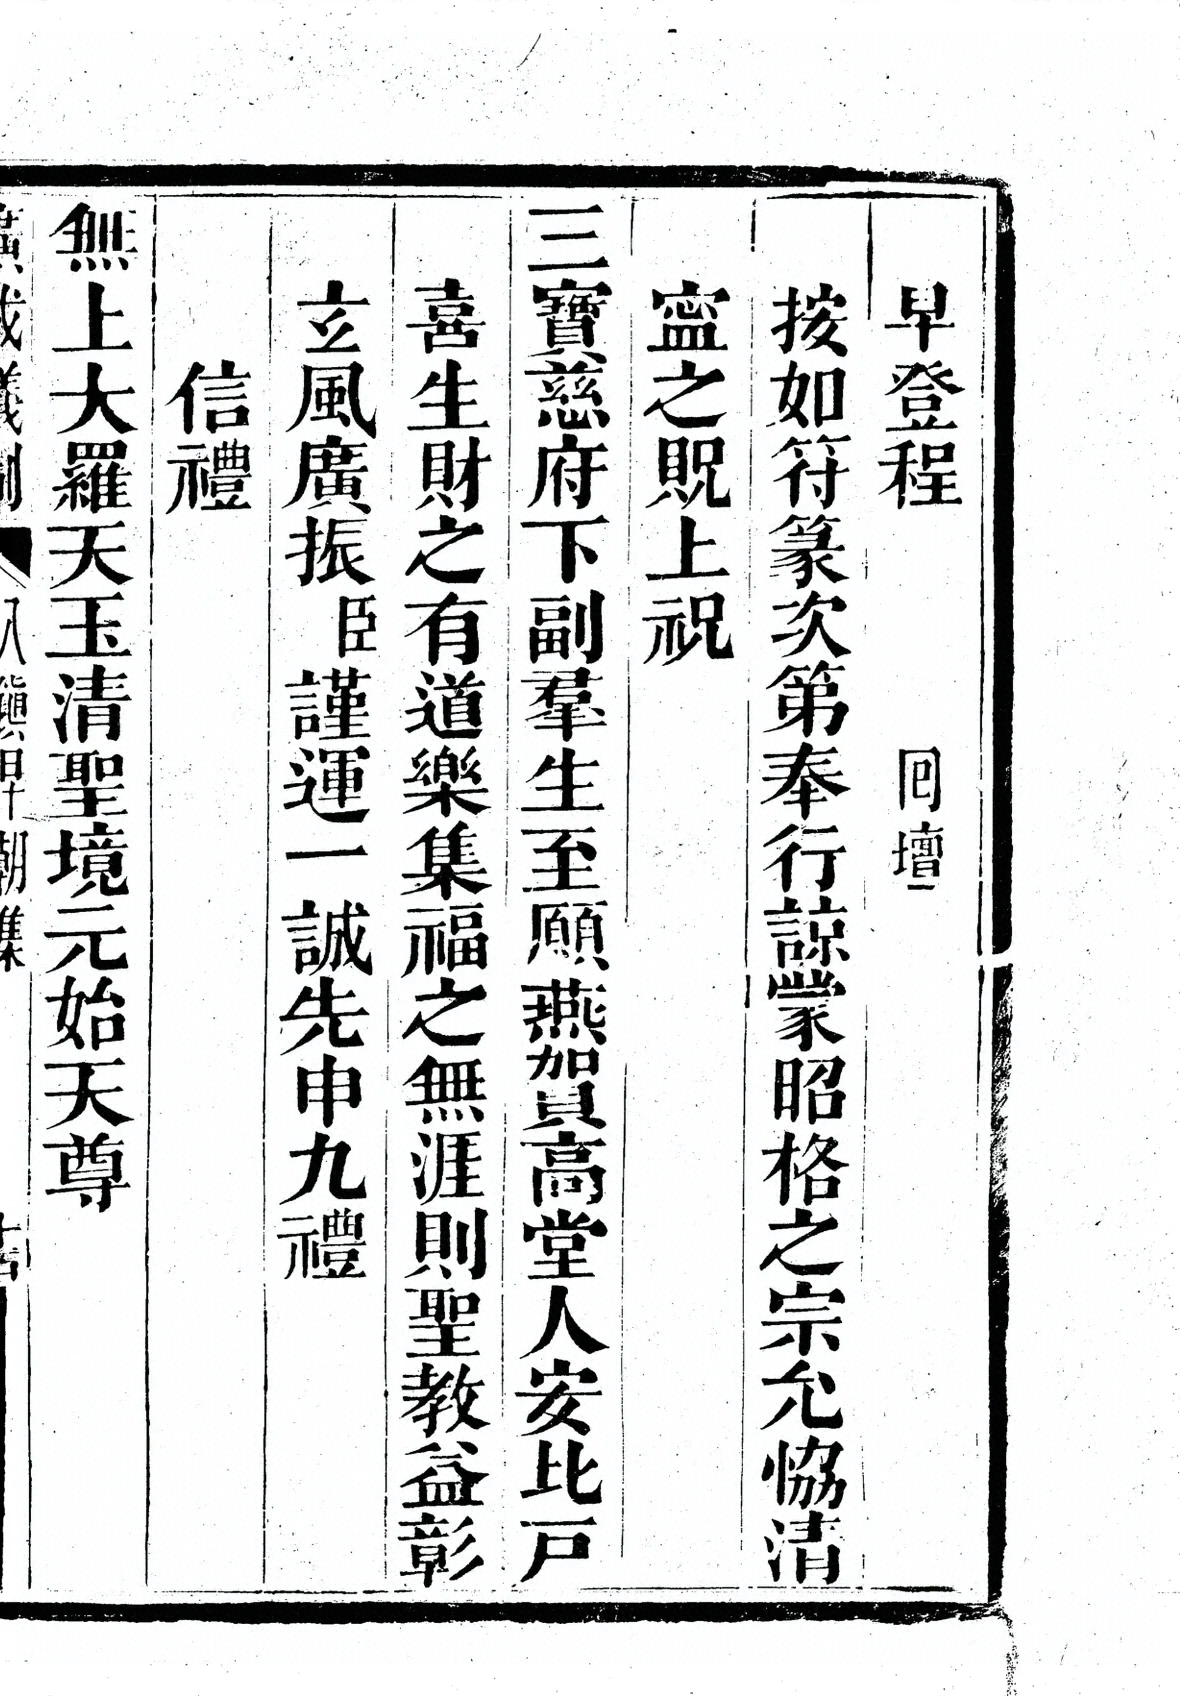 早登程 回壇
按如符篆次第奉行諒蒙昭格之宗允恊清
寍之貺上祝
三寶慈府下副羣生至願燕賀高堂人安比戸
喜生財之有道樂集福之無涯則聖教益彰
玄風廣振臣謹運一誠先申九禮
信禮
無上大羅天玉清聖境元始天尊
廣成儀制 八鎮早朝集